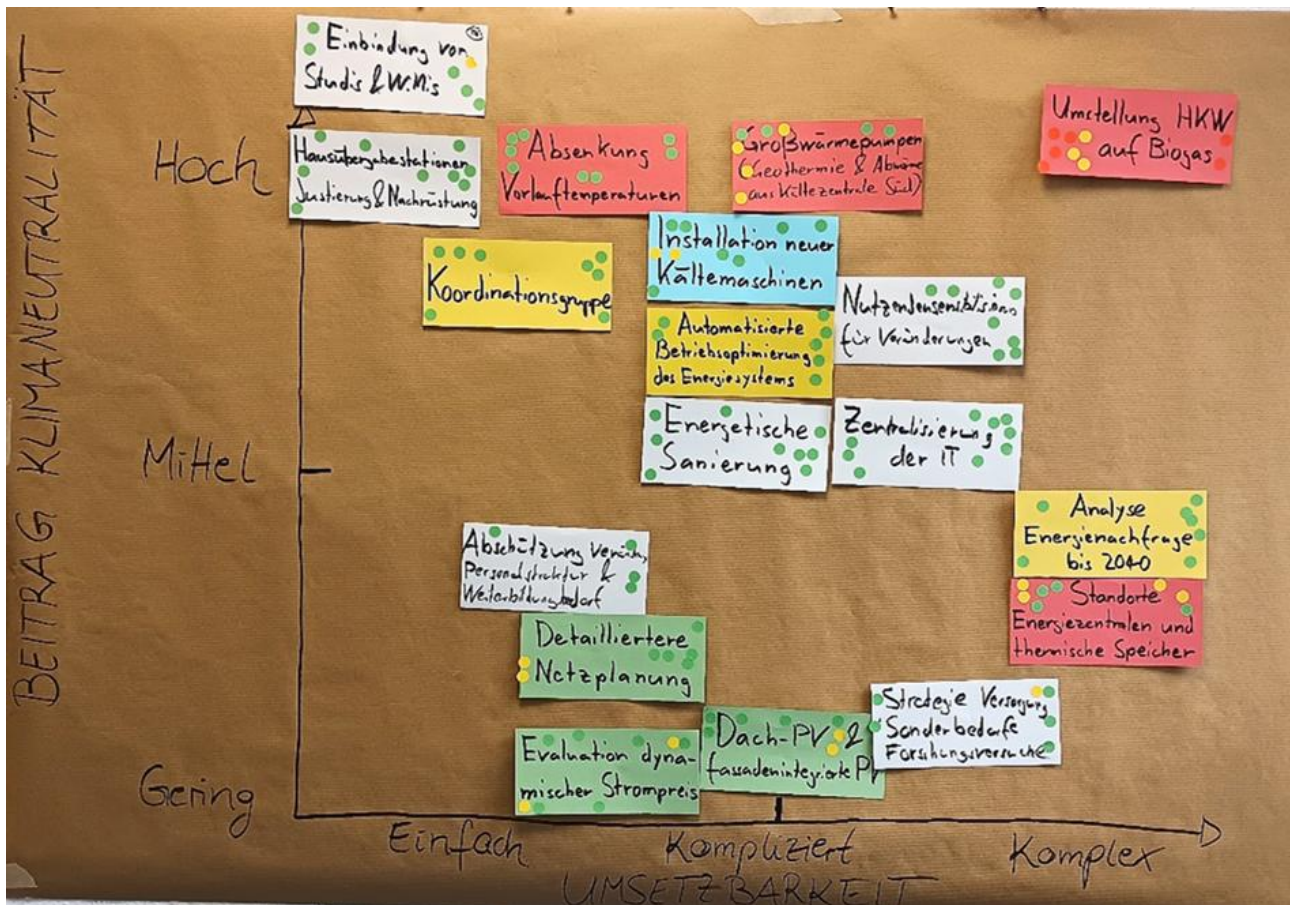 BEITRAG KLIMANEUTRALITÄT
Einbindung von
Studis & W.Mis
Hoch
Hausübergabestationen
Justierung & Nachrüstung
Absenkung
Vorlauftemperaturen
Großwärmepumpen
(Geothermie & Abwärme
aus Kältezentrale Süd)
Umstellung HKW
auf Biogas
Koordinationsgruppe
Installation neuer
Kältemaschinen
Automatisierte
Betriebsoptimierung
des Energiesystems
für Veränderungen
Mittel
Energetische
Sanierung
Zentralisierung
der IT
Analyse
Energienachfrage
bis 2040
Standorte
Energiezentralen und
thermische Speicher
Abschätzung
Personalstruktur &
Weiterbildungsbedarf
Detailliertere
Netzplanung
Strategie Versorgung
Sonderbedarfe
Forschungsversuche
Gering
Evaluation dyna-
mischer Strompreis
Dach-PV &
fassadenintegrierte PV
Einfach
Kompliziert
Komplex
UMSETZBARKEIT